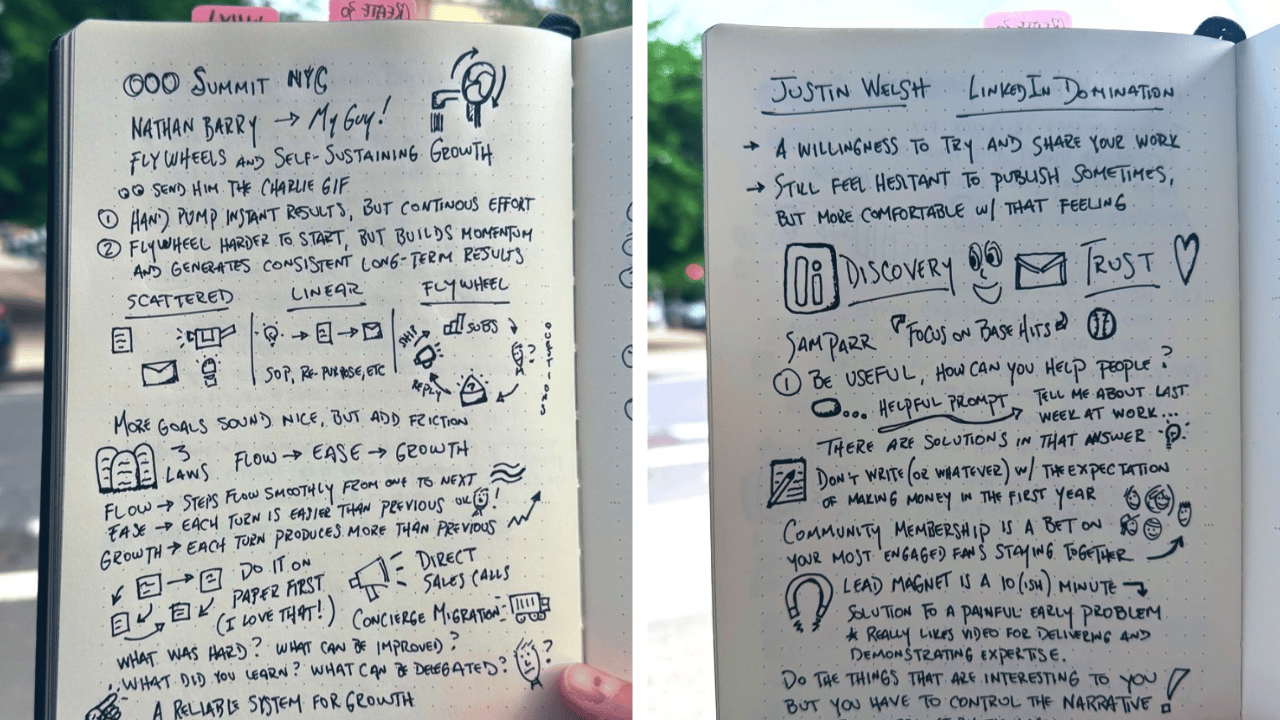 Summit NYC
Nathan Barry → My Guy!
Flywheels and Self-Sustaining Growth
Send him the Charlie GIF
① Hand pump instant results, but continous effort
② Flywheel harder to start, but builds momentum
and generates consistent long-term results
Scattered Linear Flywheel
Subs
Ship
?
Questions
SOP, Re-purpose, etc
Reply
?
More goals sound nice, but add friction
3 Laws Flow → Ease → Growth
Flow → Steps flow smoothly from one to next
Ease → Each turn is easier than previous !
Growth → Each turn produces more than previous
Do it on
paper first
(I love that!)
Direct
sales calls
Concierge Migration
What was hard? What can be improved?
What did you learn? What can be delegated? ?
A reliable system for growth
Justin Welsh LinkedIn Domination
→ A willingness to try and share your work
→ Still feel hesitant to publish sometimes,
but more comfortable w/ that feeling
Discovery Trust
Sam Parr "Focus on Base Hits"
① Be useful, how can you help people?
... Helpful prompt → Tell me about last
week at work...
There are solutions in that answer
Don't write (or whatever) w/ the expectation
of making money in the first year
Community membership is a bet on
your most engaged fans staying together
Lead magnet is a 10(ish) minute
solution to a painful early problem
* Really likes video for delivering and
demonstrating expertise.
Do the things that are interesting to you
but you have to control the narrative!